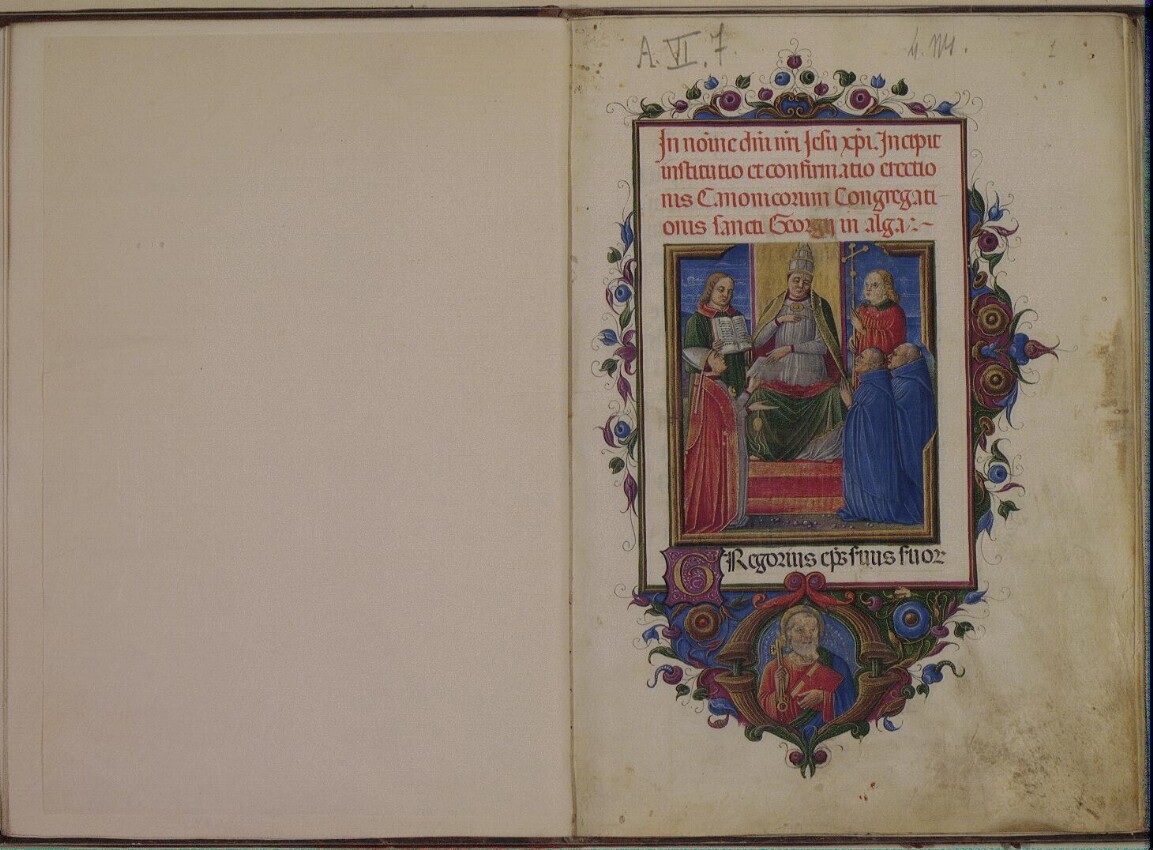 A. VI. 7.
In noi̅e dn̅i nr̅i Jesu xp̅i. Incipit
institutio et confirmatio erectio
nis Canonicorum Congregati-
onis sancti Georgij in alga:~
GRegorius ep̅s s̅uus s̅uor